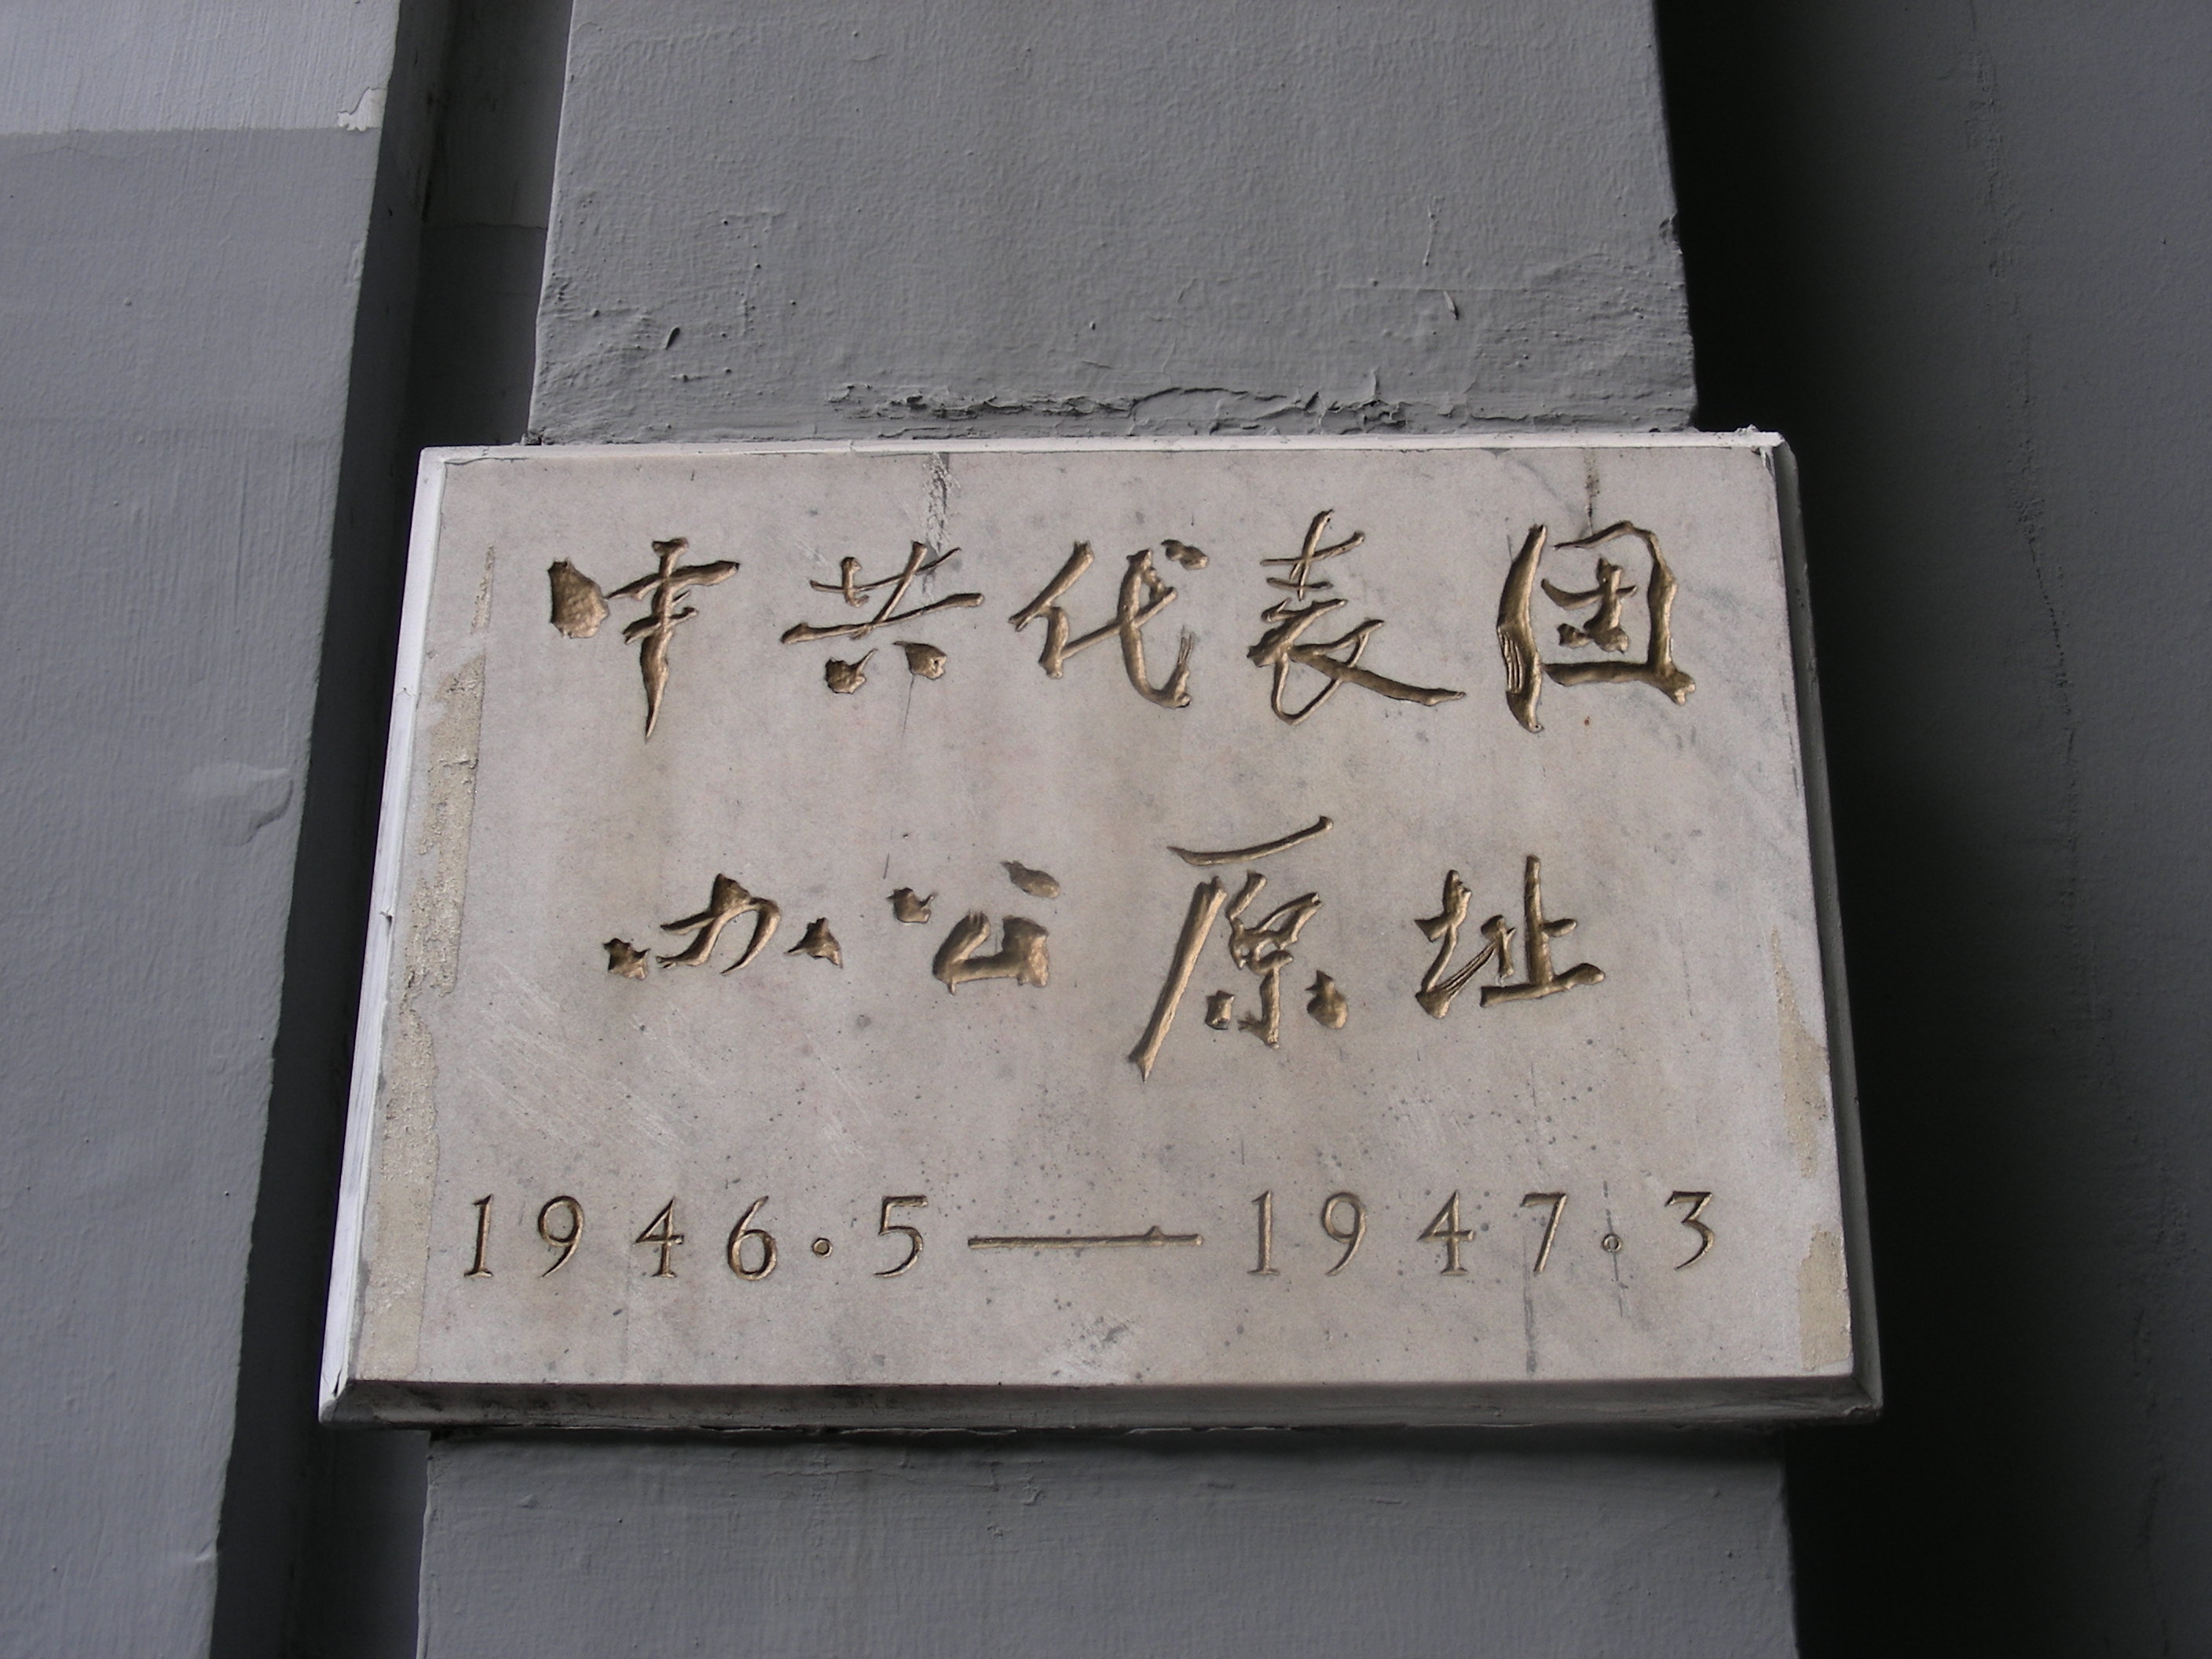 中共代表团
办公原址
1946·5——1947·3